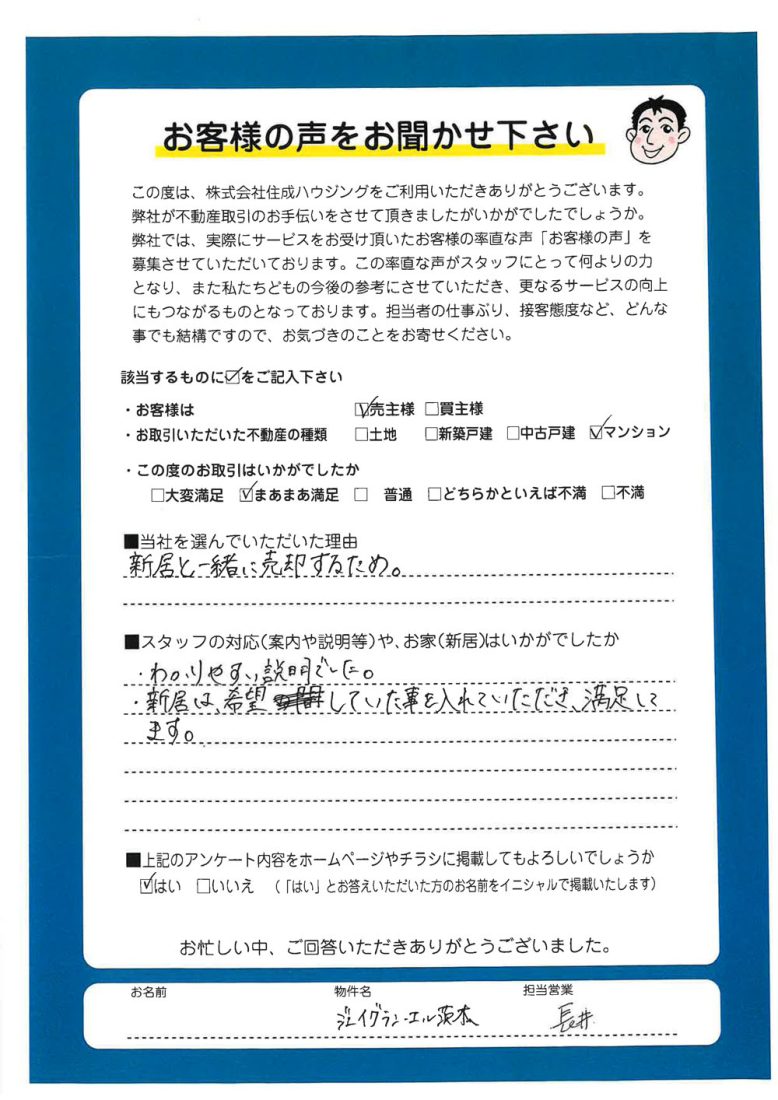 お客様の声をお聞かせ下さい
この度は、株式会社住成ハウジングをご利用いただきありがとうございます。
弊社が不動産取引のお手伝いをさせて頂きましたがいかがでしたでしょうか。
弊社では、実際にサービスをお受け頂いたお客様の率直な声「お客様の声」を
募集させていただいております。この率直な声がスタッフにとって何よりの力
となり、また私たちどもの今後の参考にさせていただき、更なるサービスの向上
にもつながるものとなっております。担当者の仕事ぶり、接客態度など、どんな
事でも結構ですので、お気づきのことをお寄せください。
該当するものに☑をご記入下さい
・お客様は ☑売主様 □買主様
・お取引いただいた不動産の種類 □土地 □新築戸建 □中古戸建 ☑マンション
・この度のお取引はいかがでしたか
□大変満足 ☑まあまあ満足 □ 普通 □どちらかといえば不満 □不満
■当社を選んでいただいた理由
新居と一緒に売却するため。
■スタッフの対応(案内や説明等)や、お家(新居)はいかがでしたか
・わかりやすい説明でした。
・新居は、希望していた事を入れていただき、満足して
ます。
■上記のアンケート内容をホームページやチラシに掲載してもよろしいでしょうか
☑はい □いいえ (「はい」とお答えいただいた方のお名前をイニシャルで掲載いたします)
お忙しい中、ご回答いただきありがとうございました。
お名前 物件名 担当営業
ジェイグラン・エル茨木 長井